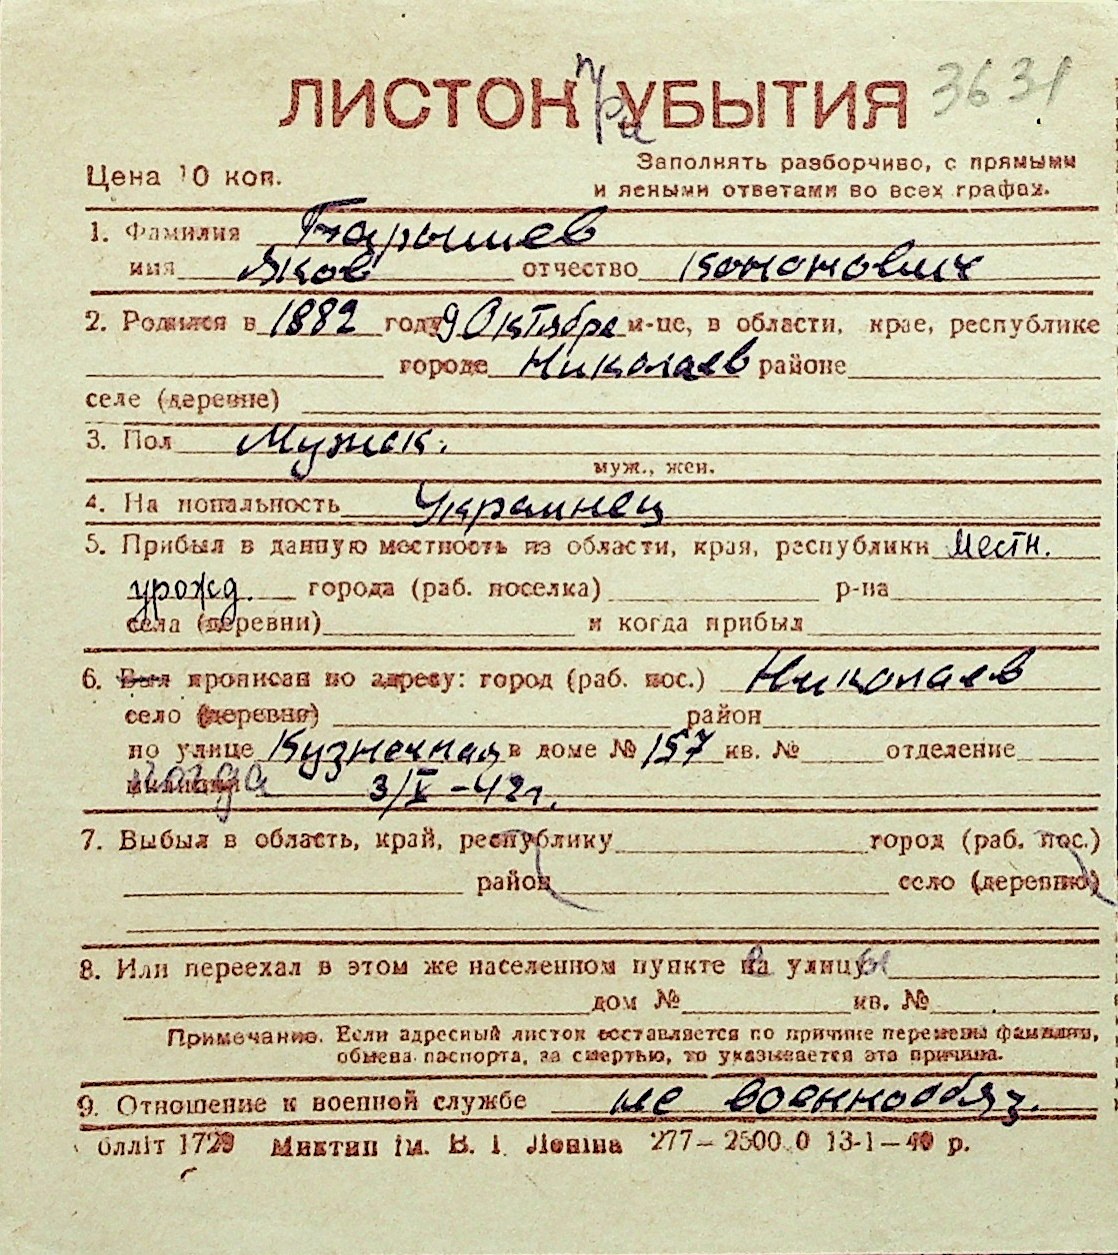 ЛИСТОК При УБЫТИЯ 3631
Цена 10 коп. Заполнять разборчиво, с прямыми
и ясными ответами во всех графах.
1. Фамилия Барышев
имя Яков отчество Кононович
2. Родился в 1882 году 9 Октября м-це, в области, крае, республике
городе Николаев районе
селе (деревне)
3. Пол Мужск.
муж., жен.
4. Национальность Украинец
5. Прибыл в данную местность из области, края, республики Местн.
урожд. города (раб. поселка) р-на
села (деревни) и когда прибыл
6. Был прописан по адресу: город (раб. пос.) Николаев
село (деревня) район
по улице Кузнечная в доме № 157 кв. № отделение
милиции когда 3/V-42г.
7. Выбыл в область, край, республику город (раб. пос.)
район село (деревню)
8. Или переехал в этом же населенном пункте на улицу
дом № кв. №
Примечание. Если адресный листок составляется по причине перемены фамилии,
обмена паспорта, за смертью, то указывается эта причина.
9. Отношение к военной службе не военнообяз.
блліт 1729 Миктип ім. В. І. Леніна 277—2500.0 13-1—40 р.